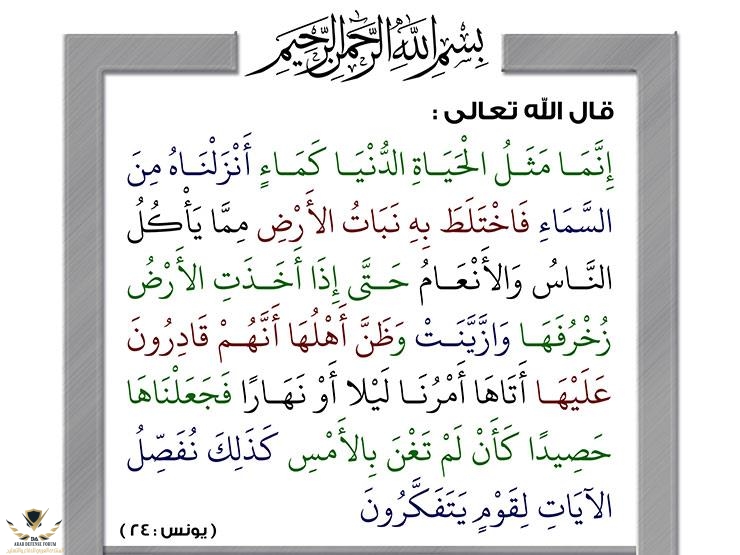 بِسْمِ اللَّهِ الرَّحْمَنِ الرَّحِيمِ
قال الله تعالى :
إِنَّمَا مَثَلُ الْحَيَاةِ الدُّنْيَا كَمَاءٍ أَنْزَلْنَاهُ مِنَ
السَّمَاءِ فَاخْتَلَطَ بِهِ نَبَاتُ الأَرْضِ مِمَّا يَأْكُلُ
النَّاسُ وَالأَنْعَامُ حَتَّى إِذَا أَخَذَتِ الأَرْضُ
زُخْرُفَهَا وَازَّيَّنَتْ وَظَنَّ أَهْلُهَا أَنَّهُمْ قَادِرُونَ
عَلَيْهَا أَتَاهَا أَمْرُنَا لَيْلا أَوْ نَهَارًا فَجَعَلْنَاهَا
حَصِيدًا كَأَنْ لَمْ تَغْنَ بِالأَمْسِ كَذَلِكَ نُفَصِّلُ
الآيَاتِ لِقَوْمٍ يَتَفَكَّرُونَ
( يونس : ٢٤ )
DA
ARAB DEFENSE FORUM